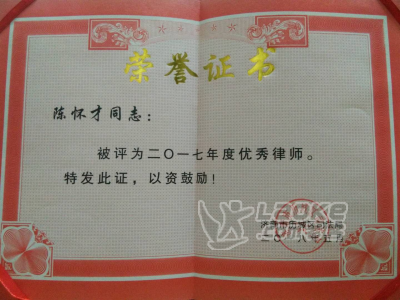 荣誉证书
陈怀才同志：
被评为二〇一七年度优秀律师。
特发此证，以资鼓励！
二〇一八年五月